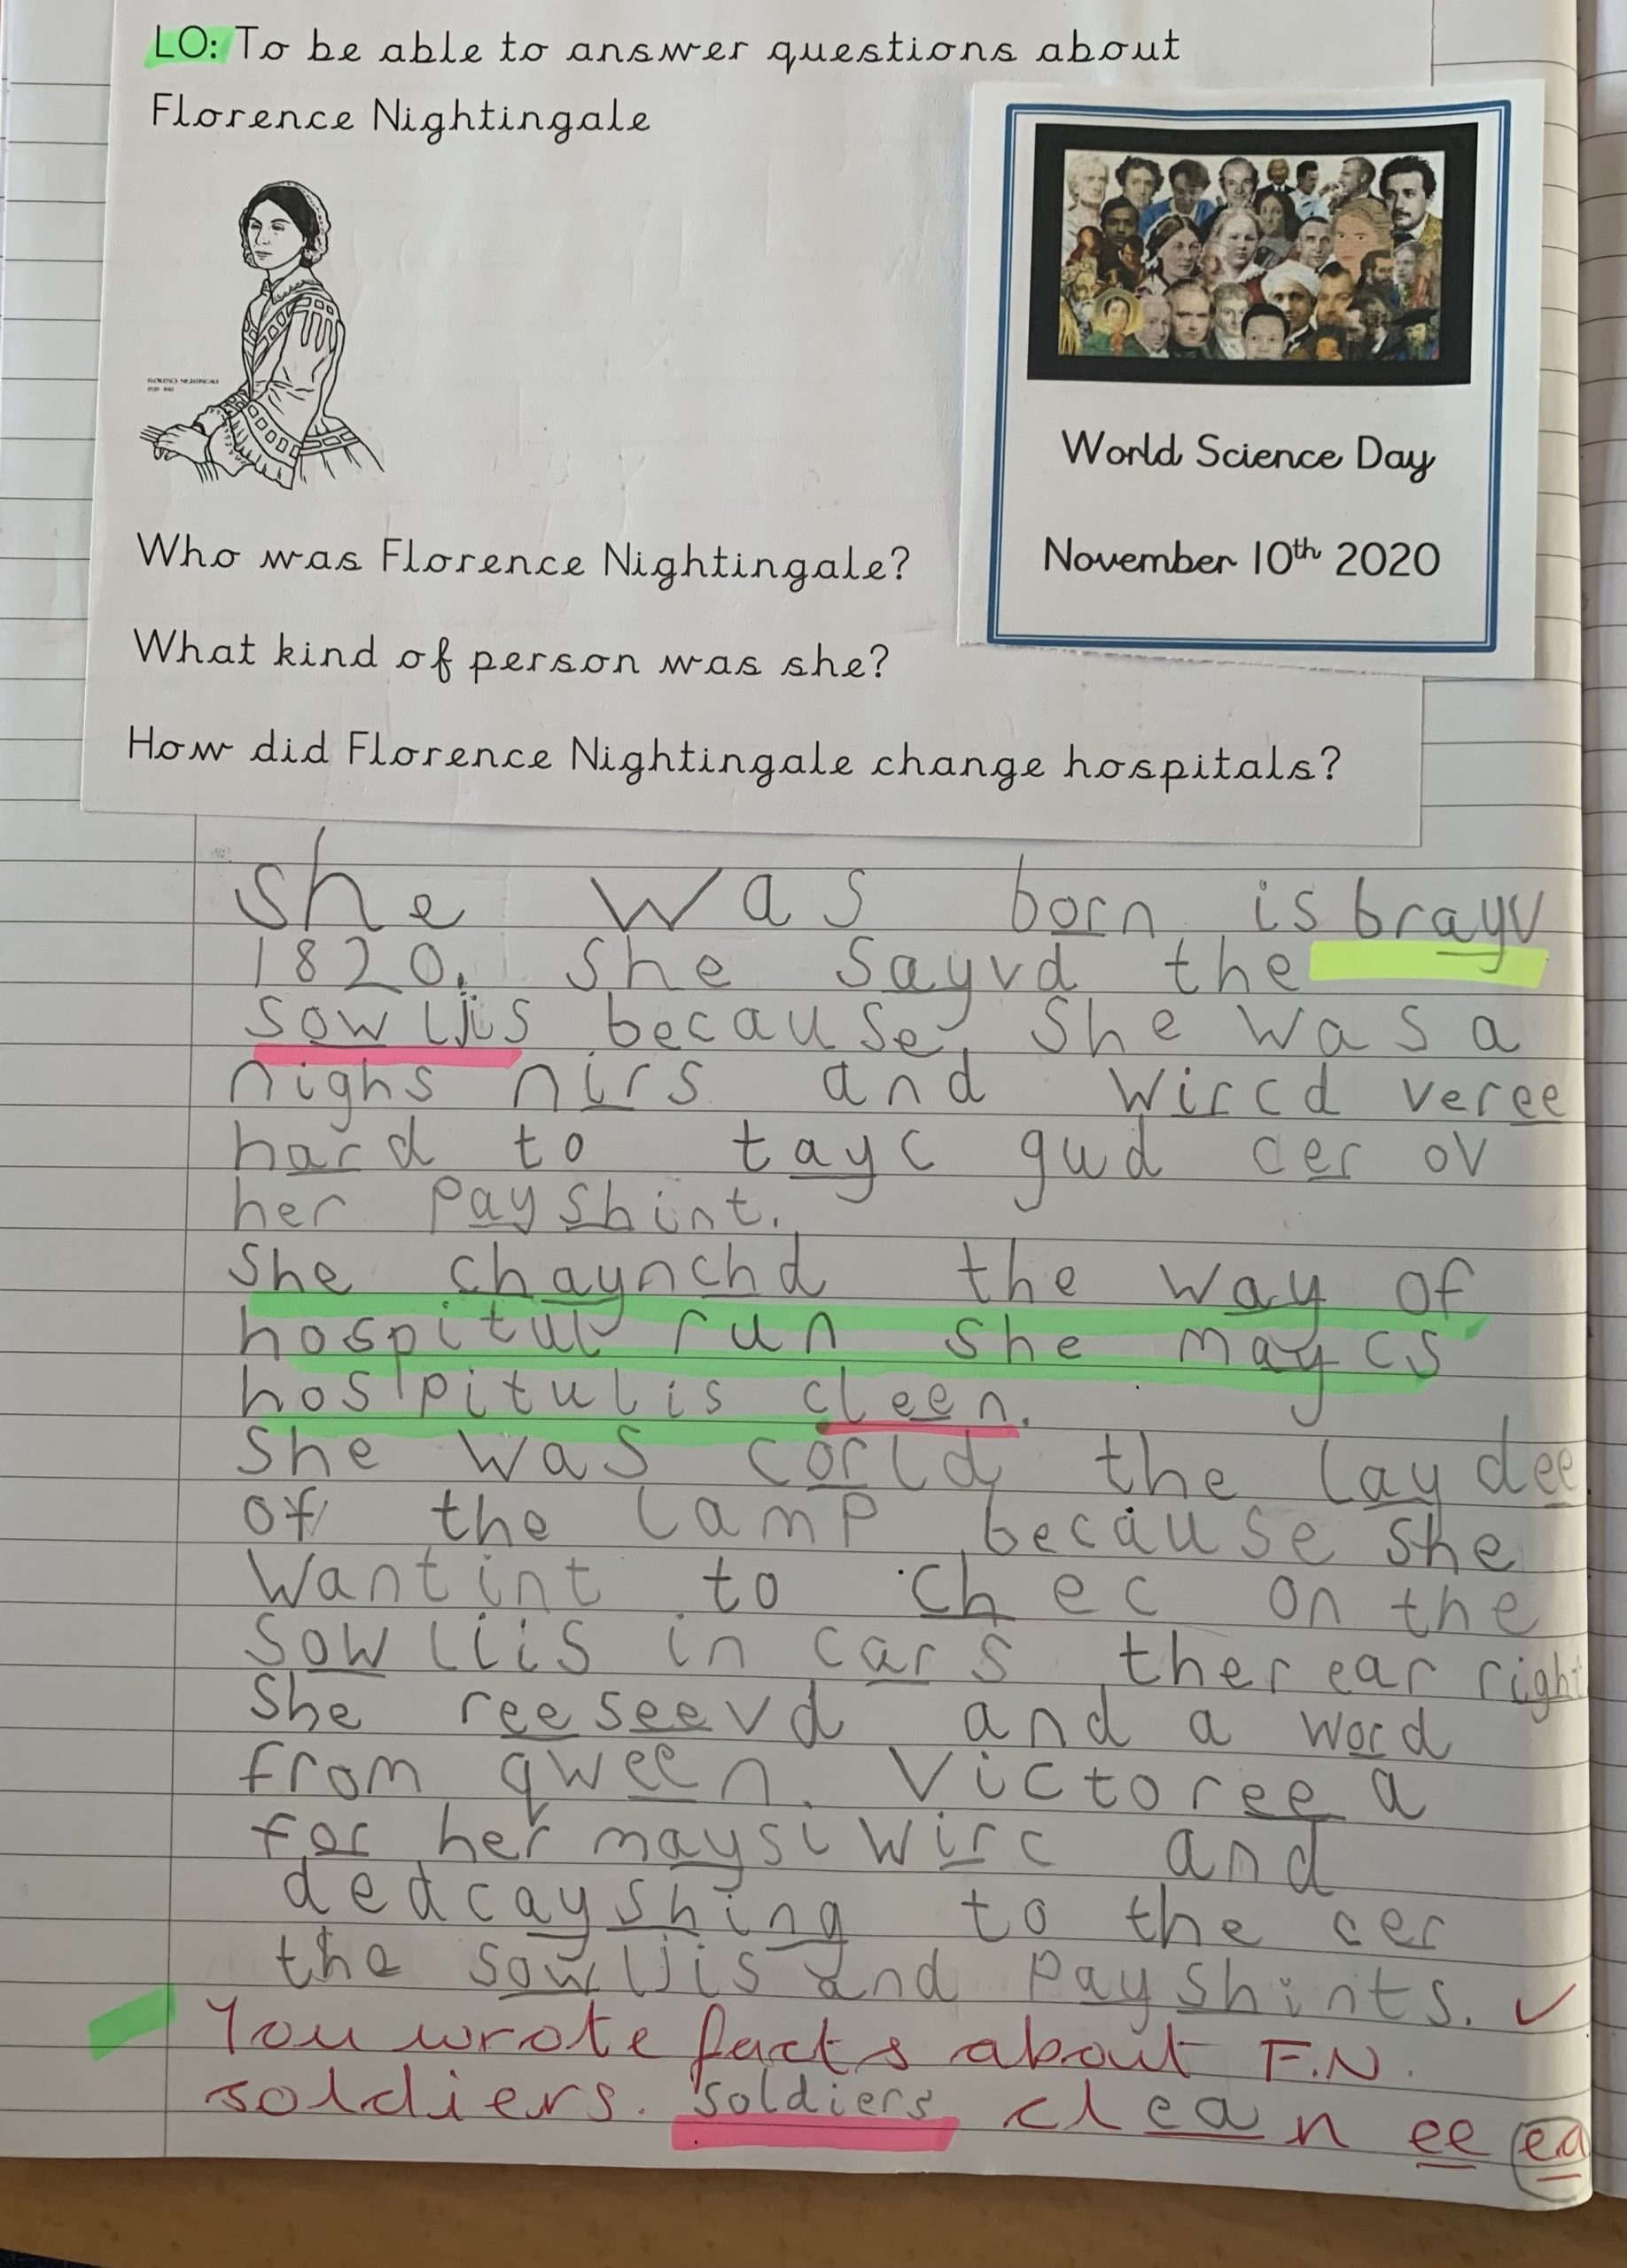 LO: To be able to answer questions about
Florence Nightingale
FLORENCE NIGHTINGALE
World Science Day
November 10th 2020
Who was Florence Nightingale?
What kind of person was she?
How did Florence Nightingale change hospitals?
She was born is brayv
1820. She sayvd the
sowljis because, She was a
nighs nirs and wircd veree
hard to tayc gud cer ov
her payshint.
She chaynchd the way of
hospitul run she maycs
hospitulis cleen.
She was corld the laydee
of the lamp because she
wantint to chec on the
sowliis in cars ther ear right
She reeseevd and a word
from qween. Victoree a
for her maysi wirc and
dedcayshing to the cer
the sowljis and payshints.
You wrote facts about F.N.
soldiers. soldiers clean ee ea